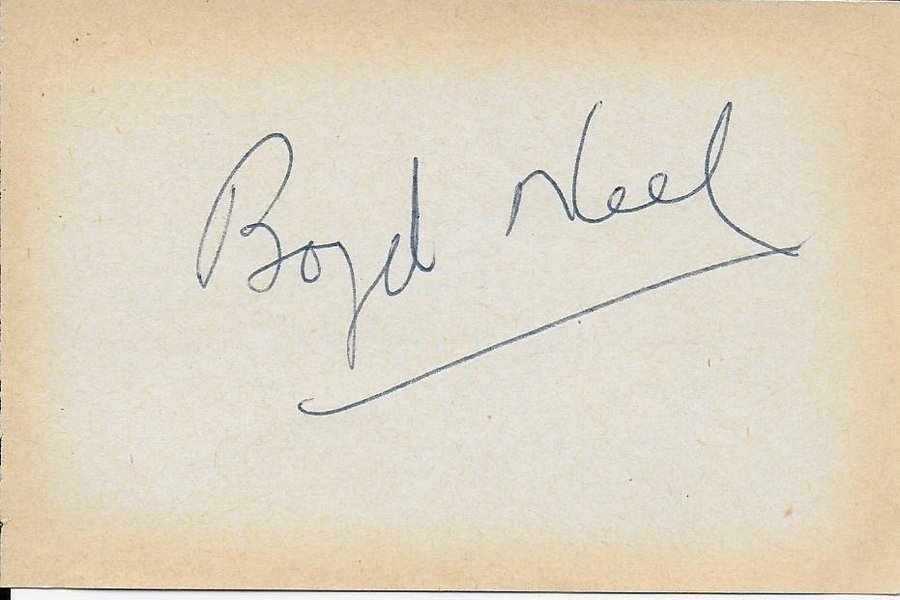 Boyd Neel